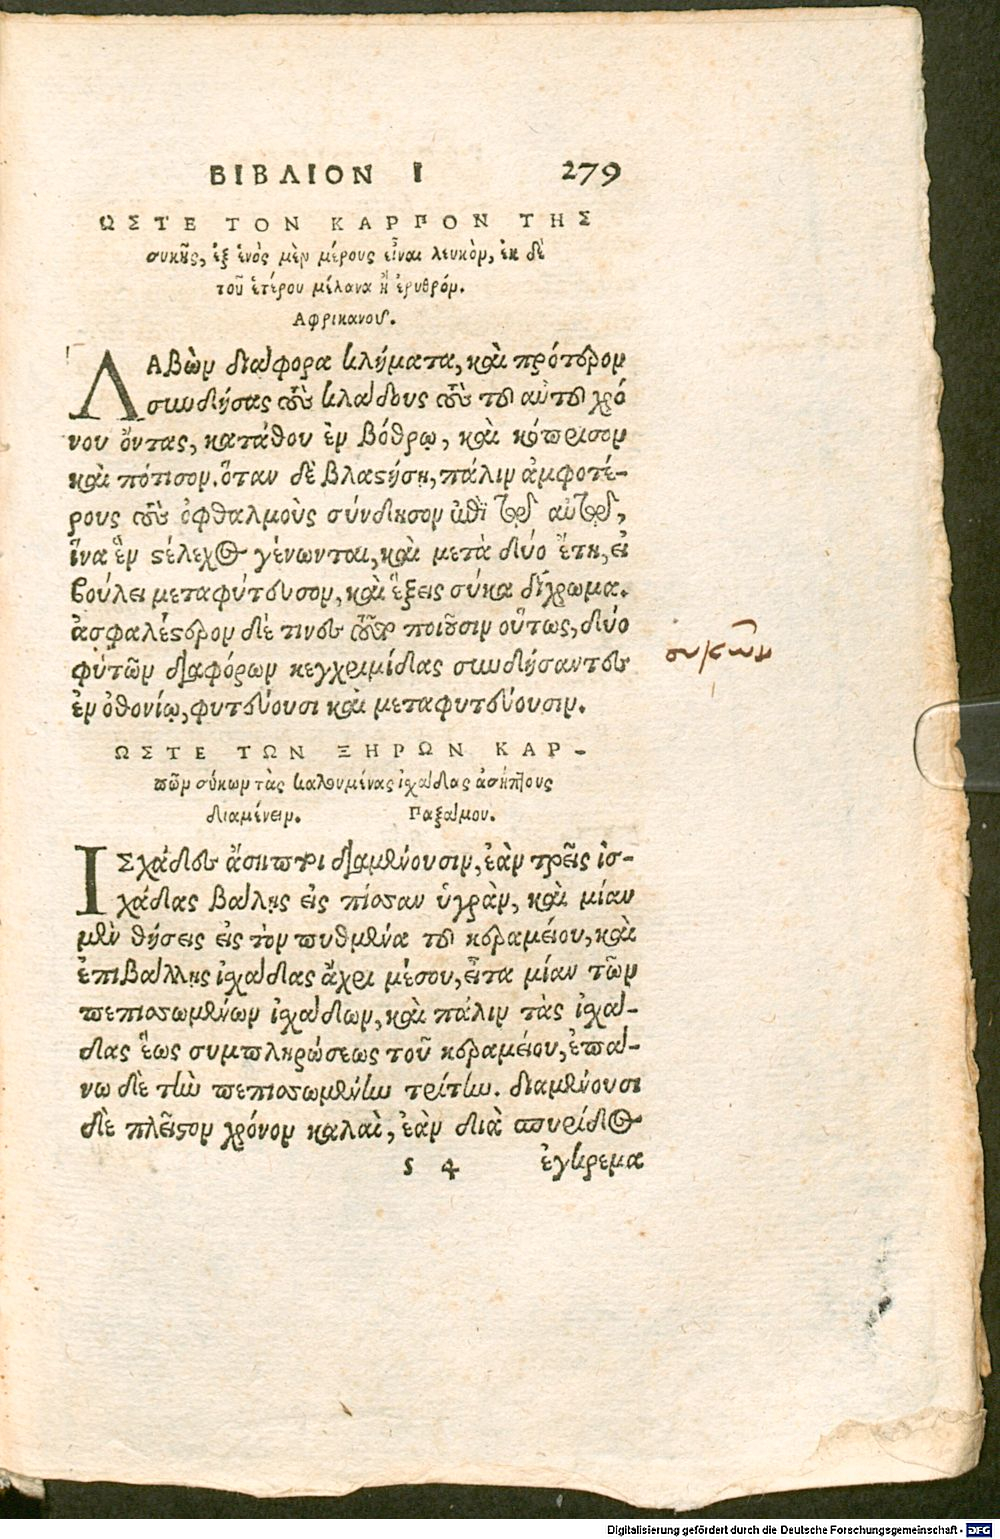 ΒΙΒΛΙΟΝ Ι 279
ΩΣΤΕ ΤΟΝ ΚΑΡΠΟΝ ΤΗΣ
συκῆς, ἐξ ἑνὸς μὲν μέρους εἶναι λευκὸν, ἐκ δὲ
τοῦ ἑτέρου μέλανα ἢ ἐρυθρόν.
Αφρικανοῦ.
ΛΑβὼν διάφορα κλήματα, καὶ πρότερον
συνδήσας τοὺς κλάδους τοὺς τοῦ αὐτοῦ χρό
νου ὄντας, κατάθου ἐν βόθρῳ, καὶ κόπρισον
καὶ πότισον. ὅταν δὲ βλαστήσῃ, πάλιν ἀμφοτέ-
ρους τοὺς ὀφθαλμοὺς σύνδησον μετ' αὐτῶν,
ἵνα ἓν στέλεχος γένωνται, καὶ μετὰ δύο ἔτη, εἰ
βούλει μεταφύτευσον, καὶ ἕξεις σύκα δίχρωμα.
ἀσφαλέστερον δέ τινες τοῦτο ποιοῦσιν οὕτως, δύο
φυτῶν διαφόρων κεγχριμίδας συνδήσαντες
ἐν ὀθονίῳ, φυτεύουσι καὶ μεταφυτεύουσιν.
συκῶν
ΩΣΤΕ ΤΩΝ ΞΗΡΩΝ ΚΑΡ-
πῶν σύκων τὰς καλουμένας ἰσχάδας ἀσήπτους
διαμένειν. Παξάμου.
ΙΣχάδες ἄσηπτοι διαμένουσιν, ἐὰν τρεῖς ἰσ-
χάδας βάλῃς εἰς πίσσαν ὑγρὰν, καὶ μίαν
μὲν θήσεις εἰς τὸν πυθμένα τοῦ κεραμείου, καὶ
ἐπιβάλλῃς ἰσχάδας ἄχρι μέσου, εἶτα μίαν τῶν
πεπισσωμένων ἰσχάδων, καὶ πάλιν τὰς ἰσχά-
δας ἕως συμπληρώσεως τοῦ κεραμείου, ἐπά-
νω δὲ τὴν πεπισσωμένην τρίτην. διαμένουσι
δὲ πλεῖστον χρόνον καλαὶ, ἐὰν διὰ σπυρίδος
s 4 ἐγκρεμα
Digitalisierung gefördert durch die Deutsche Forschungsgemeinschaft - DFG